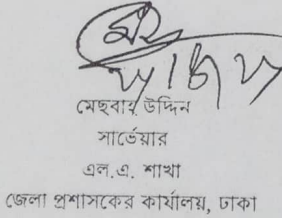 মেছবাহ উদ্দিন
সার্ভেয়ার
এল.এ. শাখা
জেলা প্রশাসকের কার্যালয়, ঢাকা